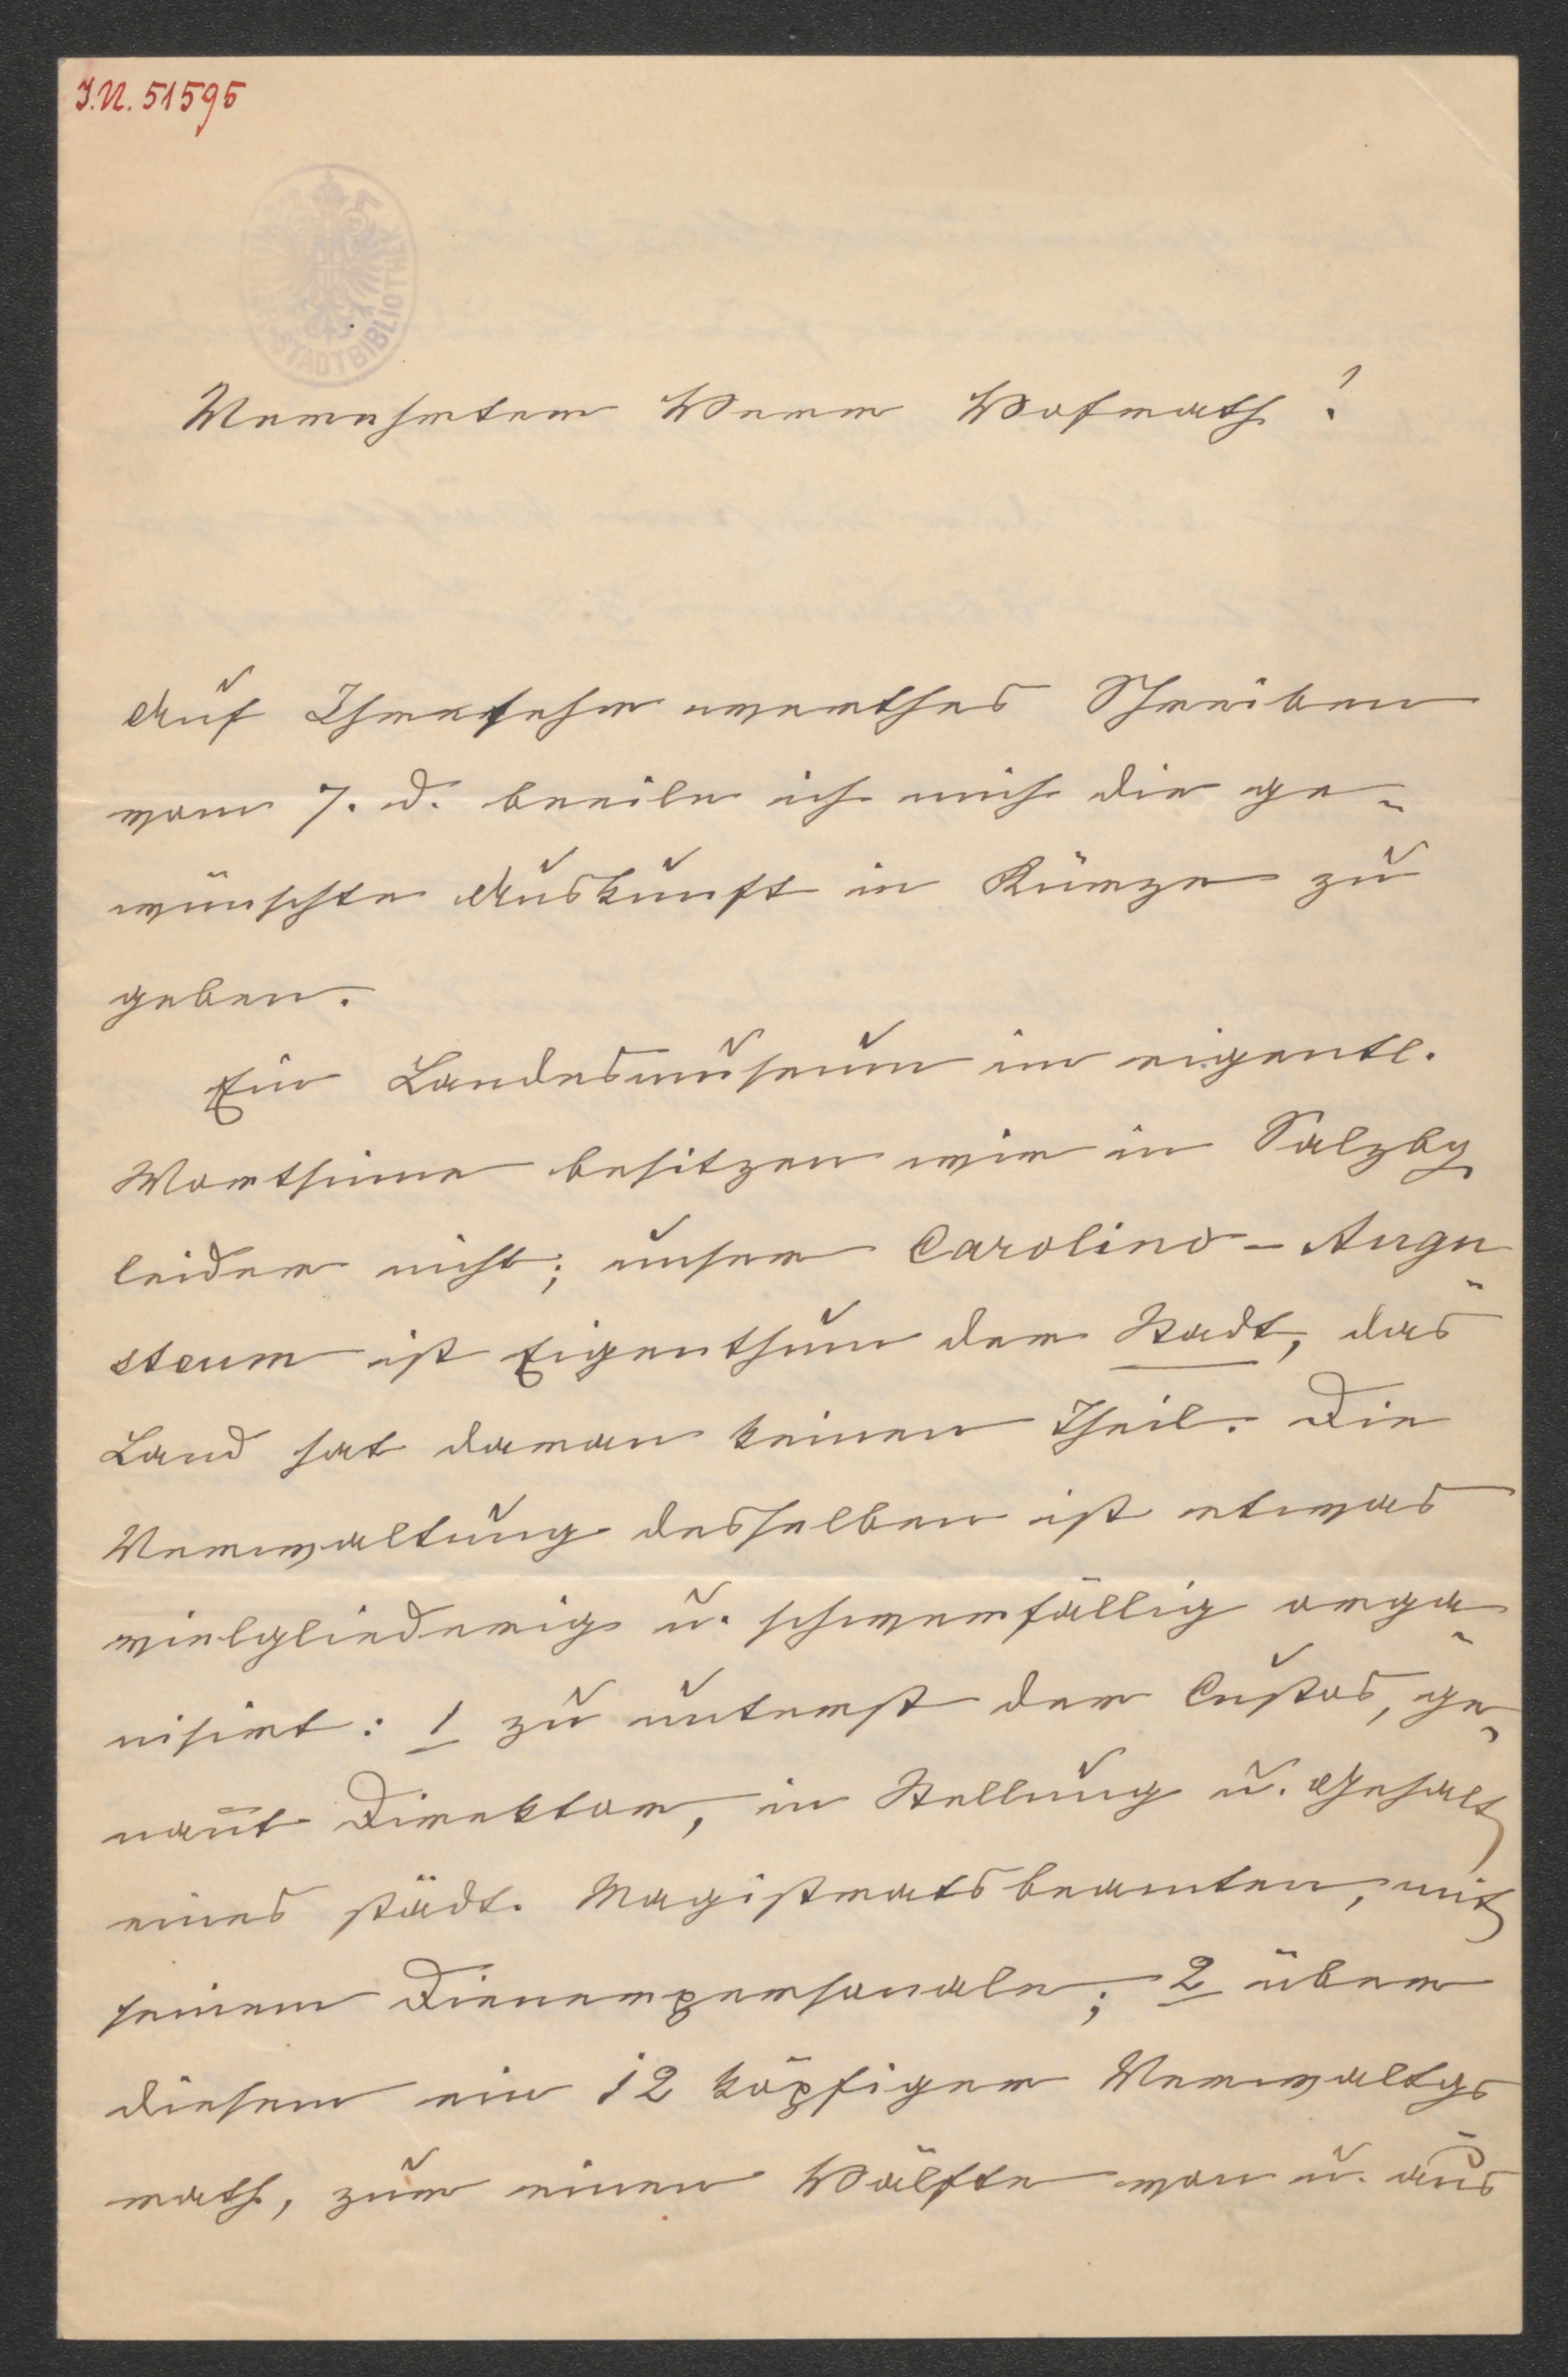 I.N. 51595
STADTBIBLIOTHEK
Verehrter Herr Hofrath!
Auf Ihr sehr werthes Schreiben
vom 7. d. beeile ich mich die ge-
wünschte Auskunft in Kürze zu
geben.
Ein Landesmuseum im eigentl.
Wortsinne besitzen wir in Salzbg
leider nicht; unser Carolino-Augu-
steum ist Eigenthum der Stadt, das
Land hat daran keinen Theil. Die
Verwaltung desselben ist etwas
vielgliederig u. schwerfällig orga-
nisirt: 1 zu unterst der Custos, ge-
nannt Direktor, in Stellung u. Gehalt
eines städt. Magistratsbeamten, mit
seinem Dienerpersonale; 2 über
diesem ein 12 köpfiger Verwaltgs
rath, zur einen Hälfte von u. aus